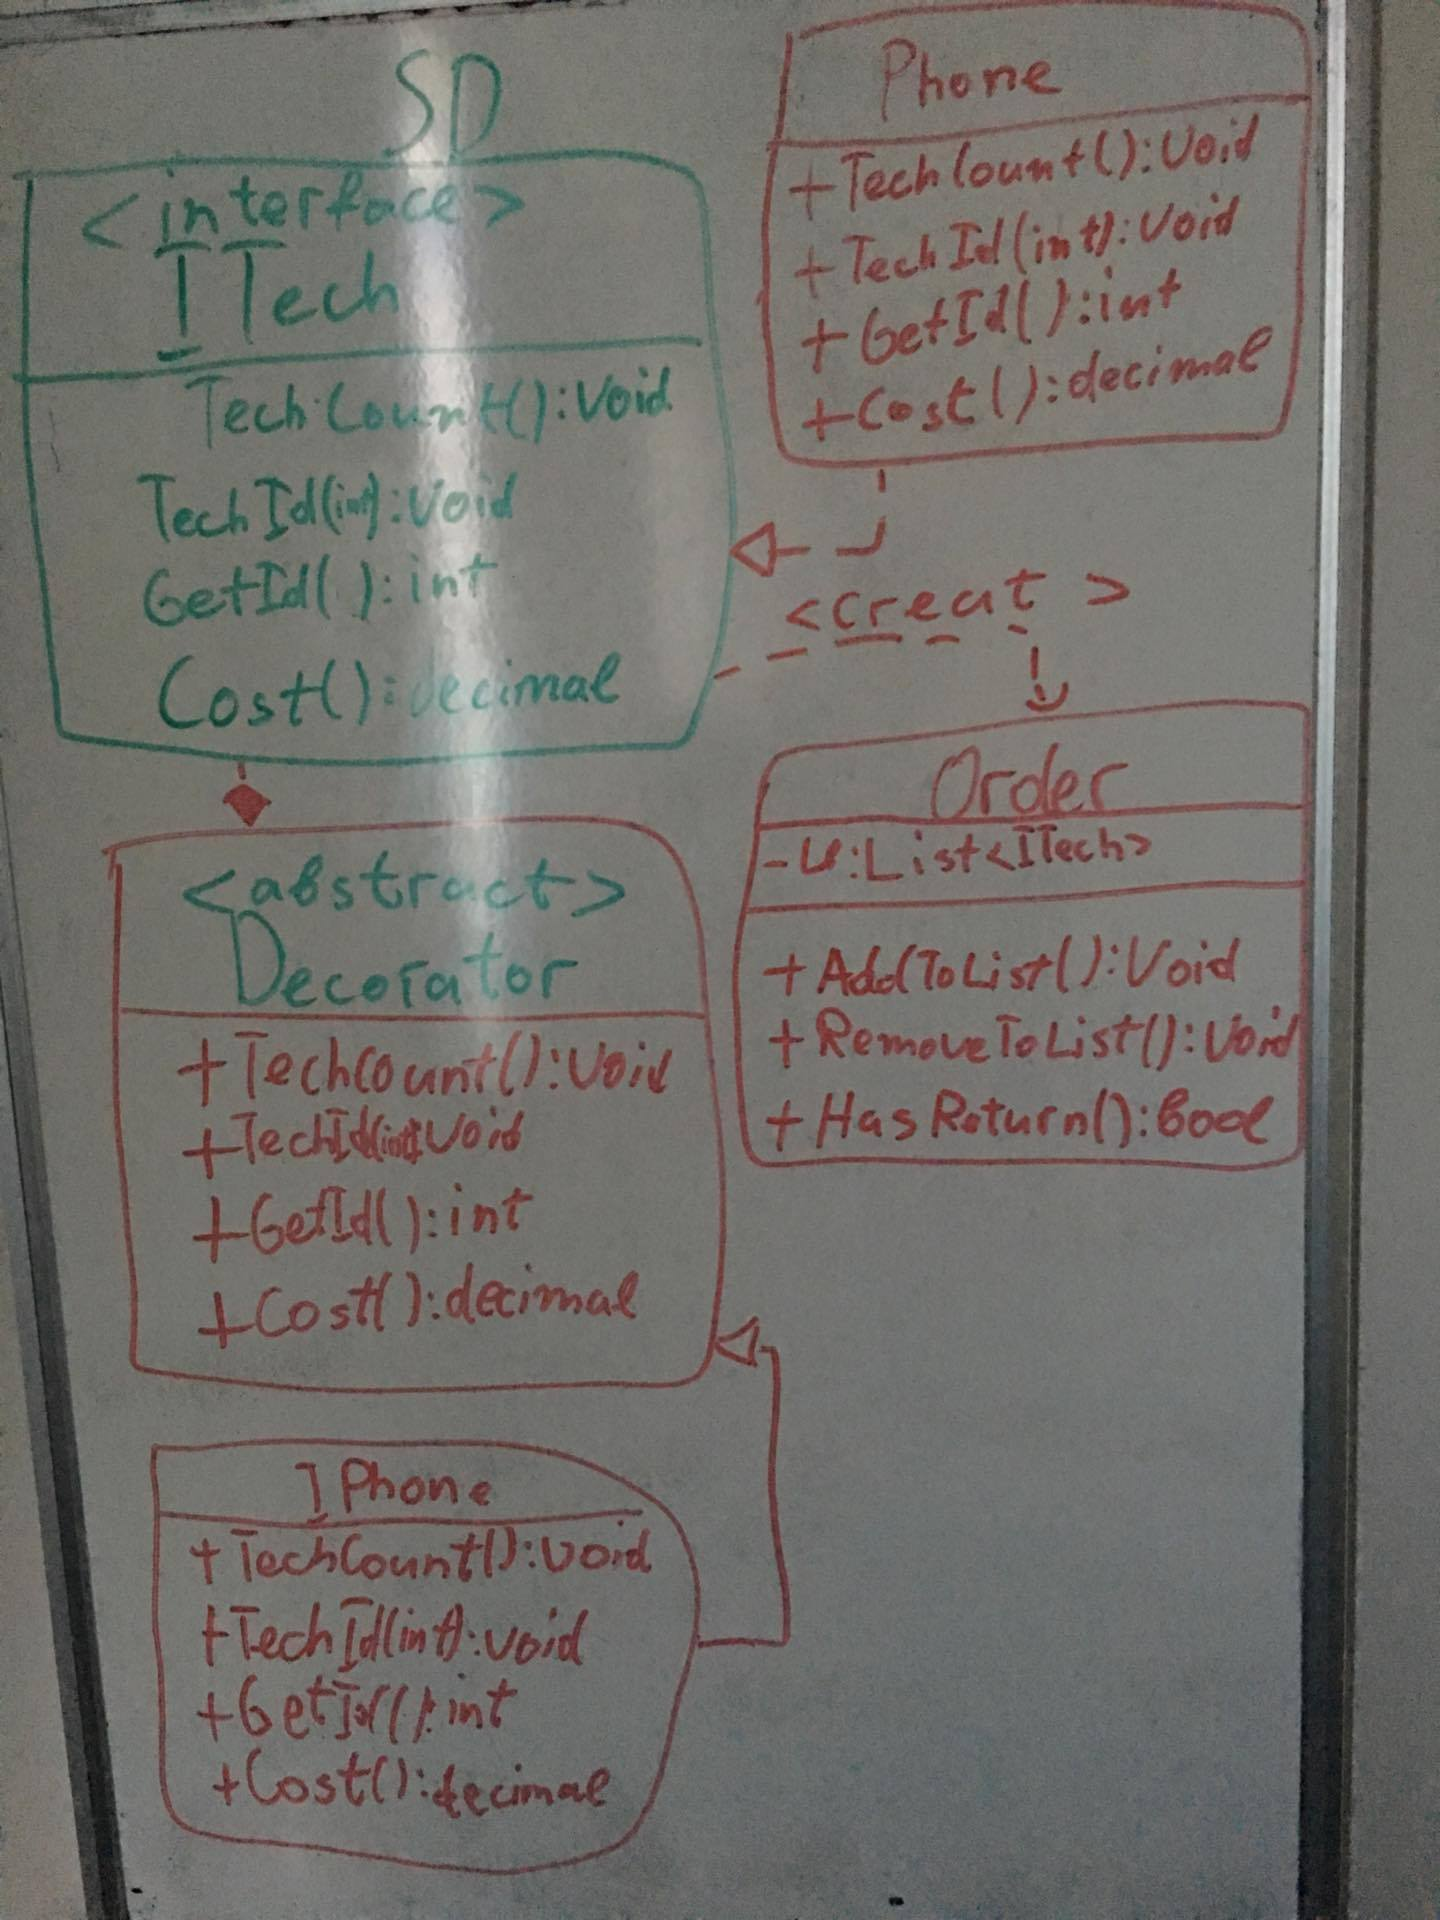 SD
<interface>
ITech
TechCount():Void
TechId(int):Void
GetId():int
Cost():decimal
Phone
+TechCount():Void
+TechId(int):Void
+GetId():int
+Cost():decimal
<creat>
Order
:List<ITech>
+AddToList():Void
+RemoveToList():Void
+HasReturn():bool
<abstract>
Decorator
+TechCount():Void
+TechId(int):Void
+GetId():int
+Cost():decimal
IPhone
+TechCount():Void
+TechId(int):void
+GetId():int
+Cost():decimal